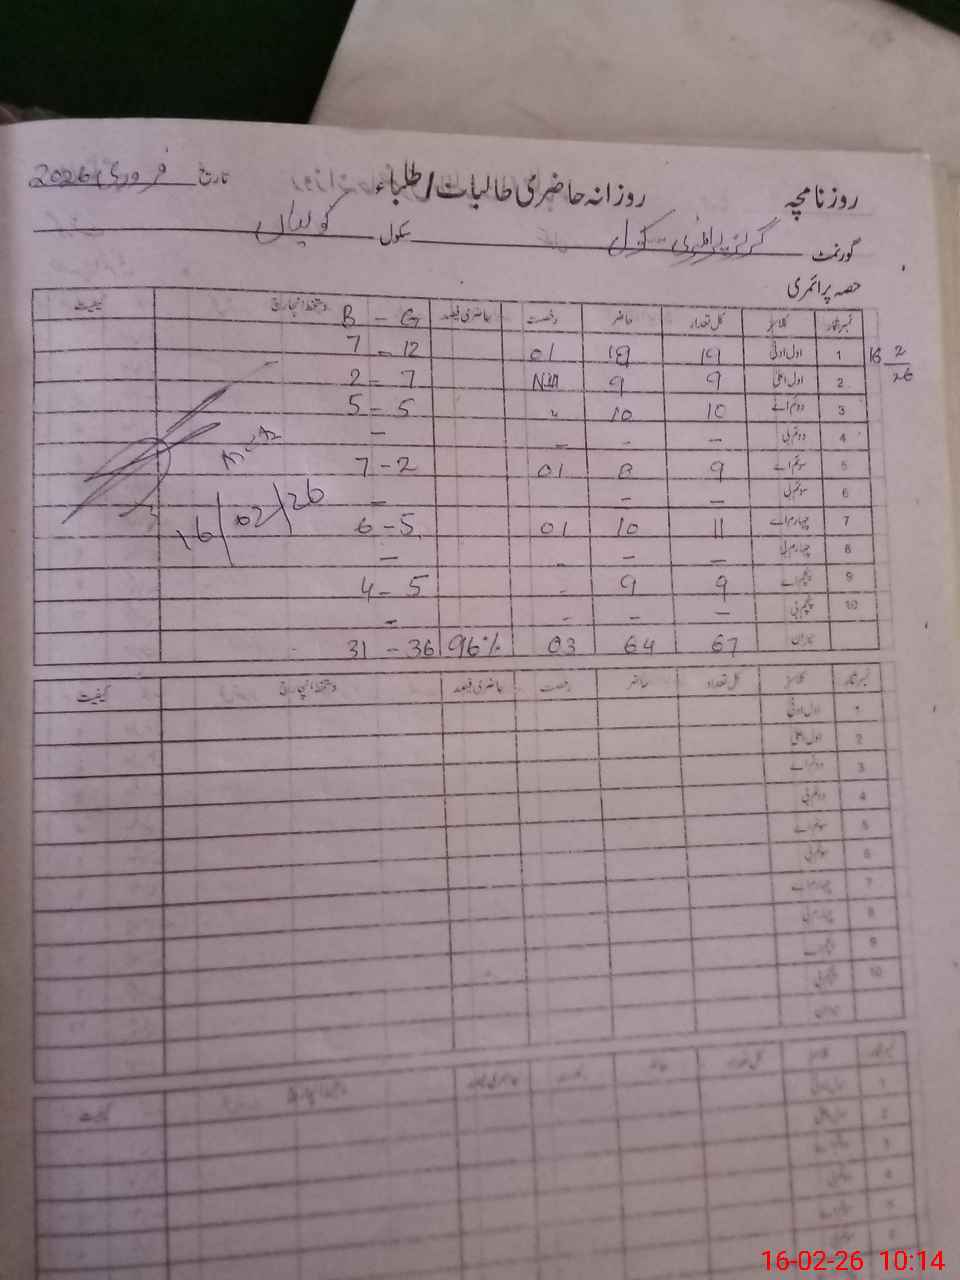 روزنامچہ روزانہ حاضری طالبات/طلباء تاریخ فروری 2026
گورنمنٹ گرلز پرائمری سکول سکول کوٹلیاں
حصہ پرائمری
نمبر شمار کلاسز کل تعداد حاضر رخصت حاضری فیصد دستخط انچارج B - G کیفیت
1 اول ادنیٰ 19 18 01 7 - 12
16 2/26
2 اول اعلیٰ 9 9 Nill 2 - 7
3 دوئم اے 10 10 " 5 - 5
4 دوئم بی - - - -
5 سوئم اے 9 8 01 7 - 2
6 سوئم بی - - -
7 چہارم اے 11 10 01 6 - 5
8 چہارم بی - - - -
9 پنجم اے 9 9 - 4 - 5
10 پنجم بی - - - -
میزان 67 64 03 96% 31 - 36
16/02/26
نمبر شمار کلاسز کل تعداد حاضر رخصت حاضری فیصد دستخط انچارج کیفیت
1 اول ادنیٰ
2 اول اعلیٰ
3 دوئم اے
4 دوئم بی
5 سوئم اے
6 سوئم بی
7 چہارم اے
8 چہارم بی
9 پنجم اے
10 پنجم بی
میزان
نمبر شمار کلاسز کل تعداد حاضر رخصت حاضری فیصد دستخط انچارج کیفیت
1 اول ادنیٰ
2 اول اعلیٰ
3 دوئم اے
4 دوئم بی
5 سوئم اے
6
16-02-26 10:14